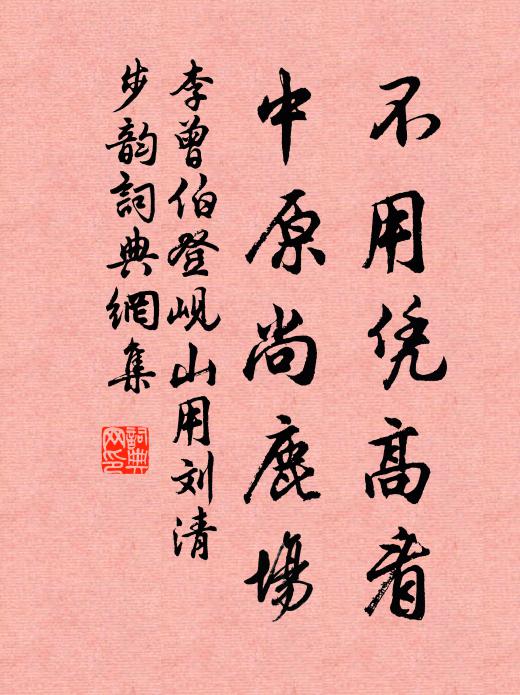 不用凭高看
中原尚鹿場
李曾伯登岘山用刘清
步韵詞典網集
詞典
网印